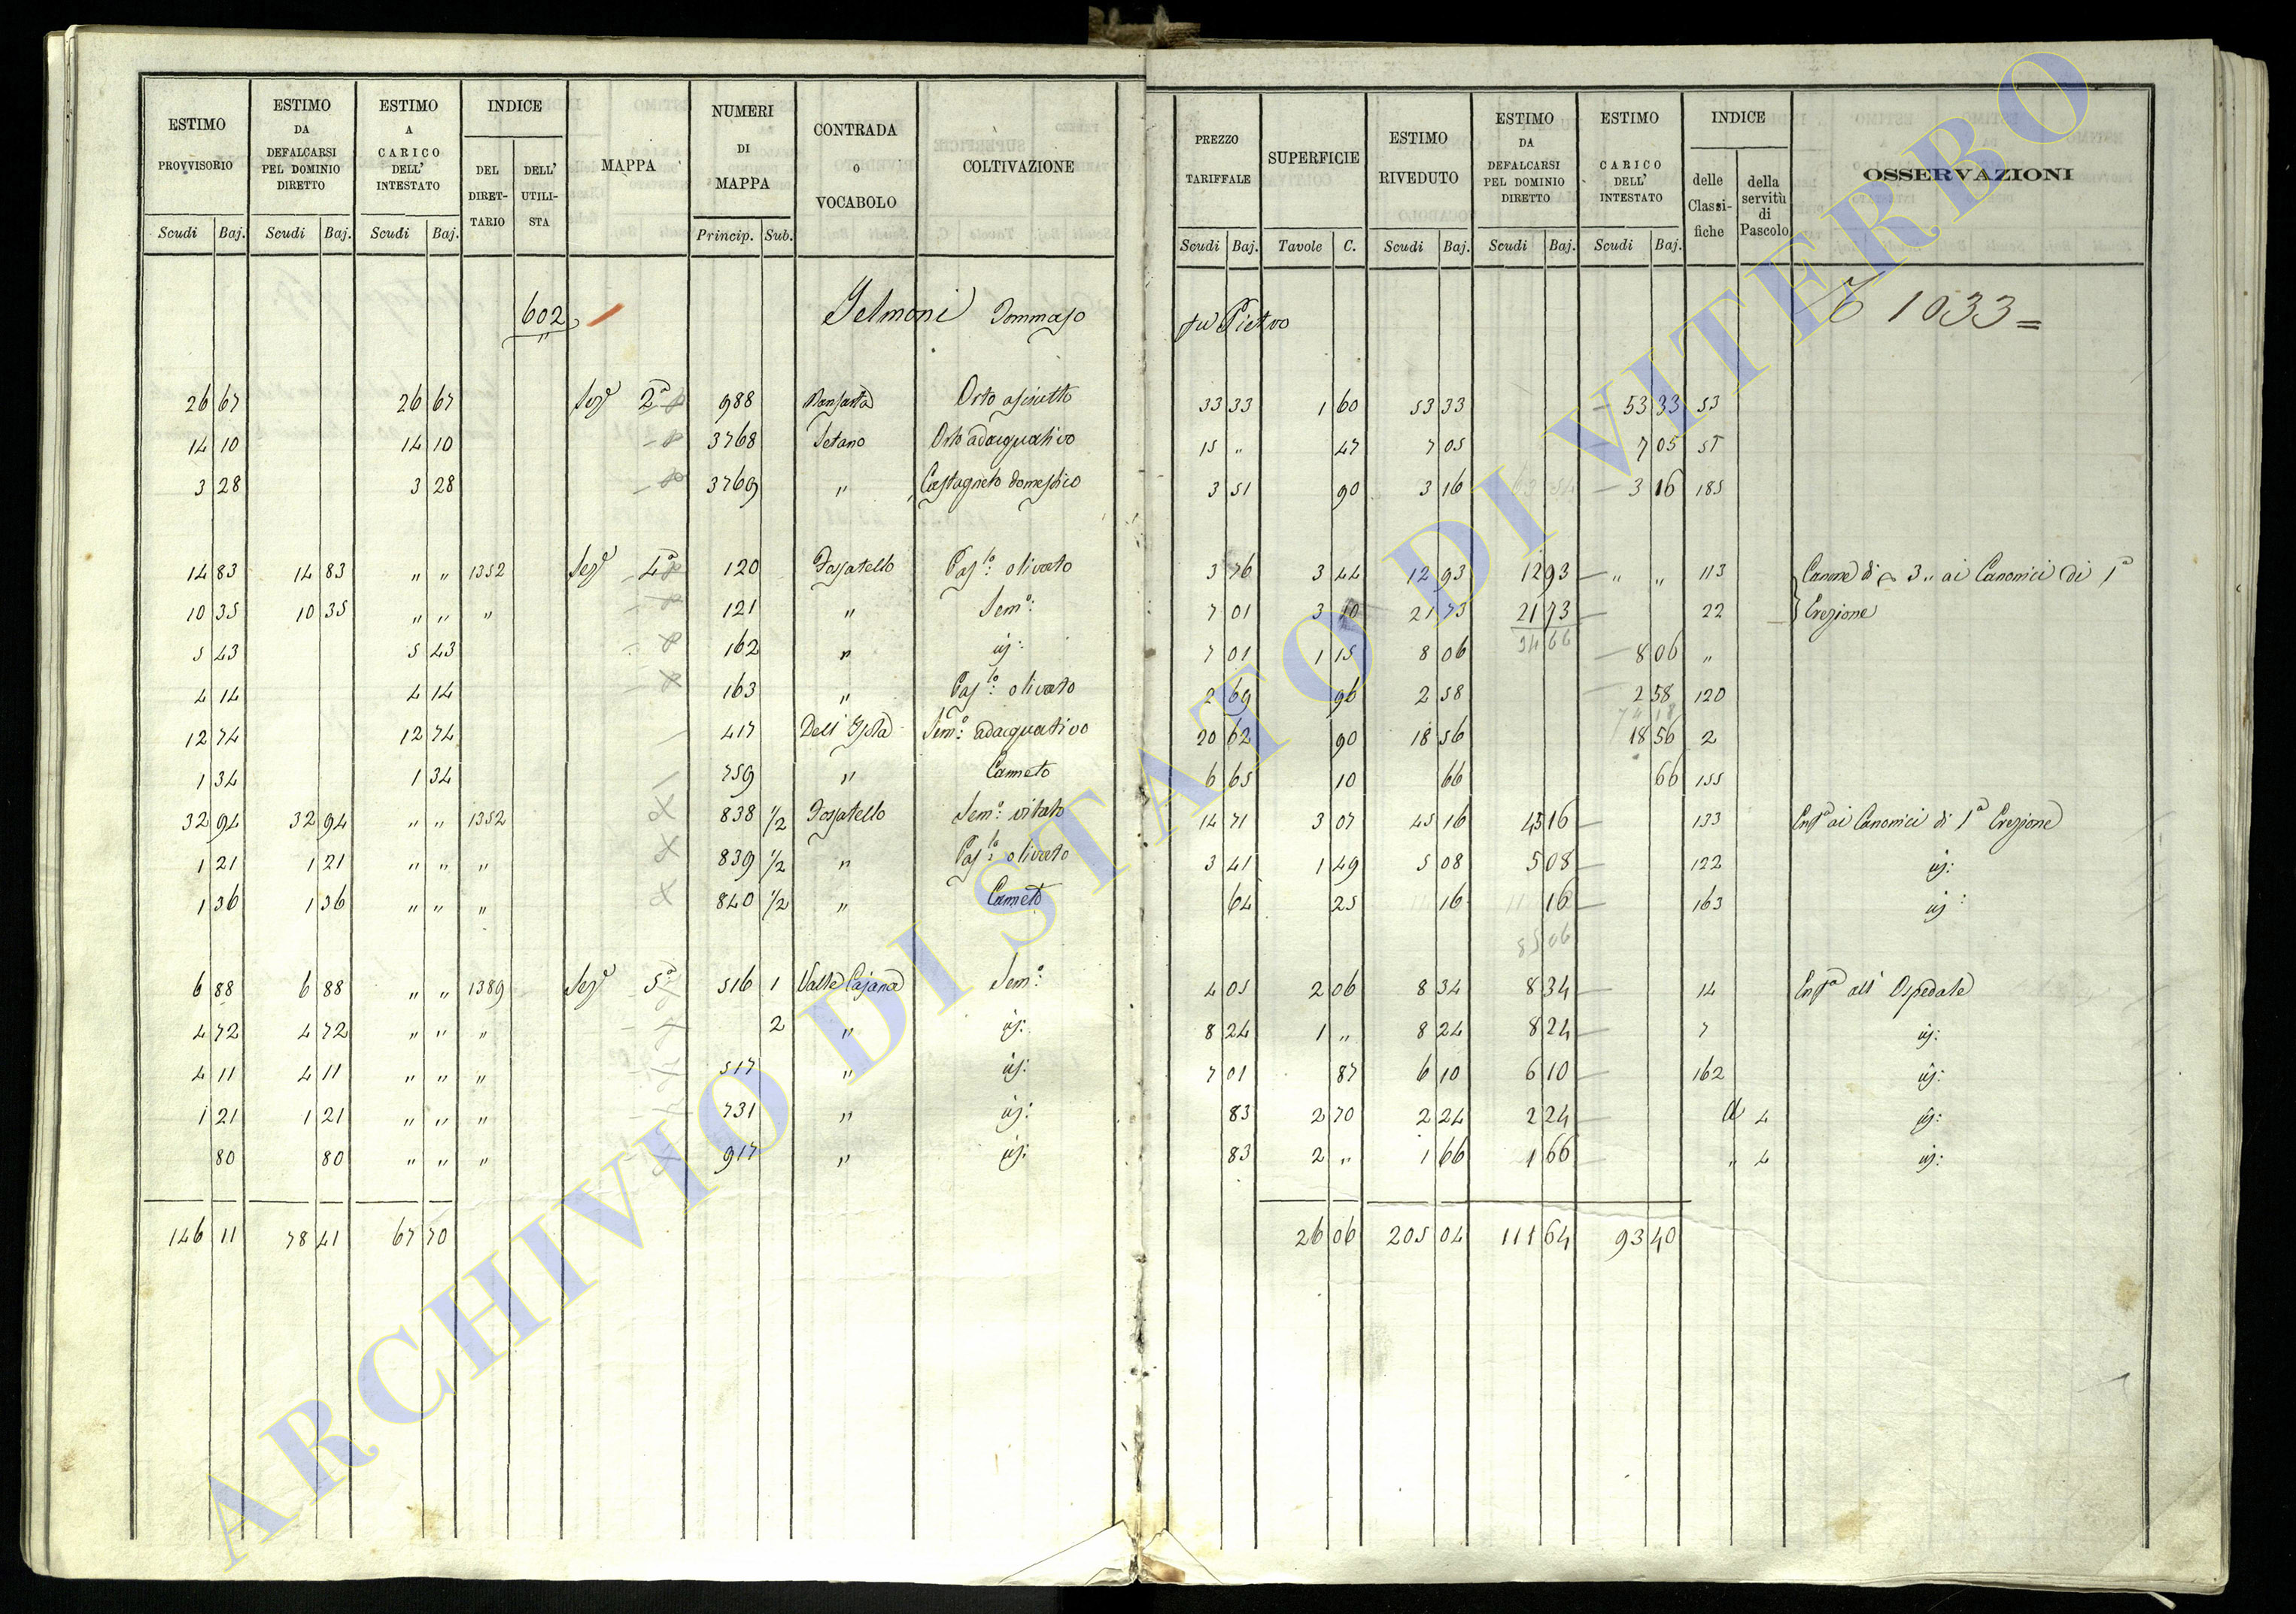 ESTIMO PROVVISORIO | ESTIMO DA DEFALCARSI PEL DOMINIO DIRETTO | ESTIMO A CARICO DELL' INTESTATO | INDICE | MAPPA | NUMERI DI MAPPA | CONTRADA O VOCABOLO | COLTIVAZIONE | PREZZO TARIFFALE | SUPERFICIE | ESTIMO RIVEDUTO | ESTIMO DA DEFALCARSI PEL DOMINIO DIRETTO | ESTIMO A CARICO DELL' INTESTATO | INDICE | OSSERVAZIONI
DEL DIRET-TARIO | DELL' UTILI-STA | delle Classi-fiche | della servitù di Pascolo
Scudi | Baj. | Scudi | Baj. | Scudi | Baj. | Princip. | Sub. | Scudi | Baj. | Tavole | C. | Scudi | Baj. | Scudi | Baj. | Scudi | Baj.
602 | Selmoni Tommaso | fu Pietro | 1033=
26 67 | 26 67 | Sez.e 2a | 988 | Orto asciutto | 33 33 | 1 60 | 53 33 | 53 33 | 53
14 10 | 14 10 | 3768 | Setano | Orto adacquativo | 15 " | 47 | 7 05 | 7 05 | 51
3 28 | 3 28 | 3769 | " | Castagneto domestico | 3 51 | 90 | 3 16 | 3 16 | 185
14 83 | 14 83 | " " | 1352 | Sez.e 4a | 120 | Fossatello | Pas.lo olivato | 3 76 | 3 44 | 12 93 | 12 93 | " " | 113 | Canone di 3 " ai Canonici di 1a
10 35 | 10 35 | " " | " | 121 | " | Sem.o | 7 01 | 3 10 | 21 73 | 21 73 | 22 | Erezione
34 66
5 43 | 5 43 | 162 | " | id: | 7 01 | 1 15 | 8 06 | 8 06 | "
4 14 | 4 14 | 163 | " | Pas.lo olivato | 2 69 | 96 | 2 58 | 2 58 | 120
74 18
12 74 | 12 74 | 417 | Dell'Isola | Sem.o adacquativo | 20 62 | 90 | 18 56 | 18 56 | 2
1 34 | 1 34 | 759 | " | Canneto | 6 65 | 10 | 66 | 66 | 155
32 94 | 32 94 | " " | 1352 | 838 | 1/2 | Fossatello | Sem.o vitato | 14 71 | 3 07 | 45 16 | 45 16 | 133 | Enf.a ai Canonici di 1a Erezione
1 21 | 1 21 | " " | " | 839 | 1/2 | " | Pas.lo olivato | 3 41 | 1 49 | 5 08 | 5 08 | 122 | id:
1 36 | 1 36 | " " | " | 840 | 1/2 | " | Canneto | 64 | 25 | 16 | 16 | 163 | id:
85 06
6 88 | 6 88 | " " | 1389 | Sez.e 5a | 516 | 1 | Valle Cajana | Sem.o | 4 05 | 2 06 | 8 34 | 8 34 | 14 | Enf.a all'Ospedale
4 72 | 4 72 | " " | " | 2 | " | id: | 8 24 | 1 " | 8 24 | 8 24 | 7 | id:
4 11 | 4 11 | " " | " | 517 | " | id: | 7 01 | 87 | 6 10 | 6 10 | 162 | id:
1 21 | 1 21 | " " | " | 731 | " | id: | 83 | 2 70 | 2 24 | 2 24 | d | 4 | id:
80 | 80 | " " | " | 917 | " | id: | 83 | 2 " | 1 66 | 1 66 | " | 4 | id:
146 11 | 78 41 | 67 70 | 26 06 | 205 04 | 111 64 | 93 40
ARCHIVIO DI STATO DI VITERBO